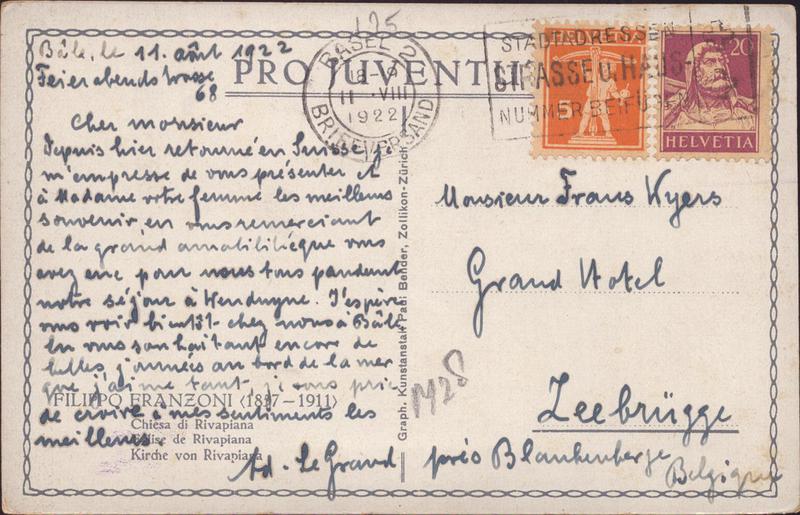 125
Bâle, le 11. août 1922
Feierabendstrasse
68
PRO JUVENTUTE
BASEL 2
18-
11 VIII
1922
BRIEFVERSAND
STADTADRESSEN
STRASSE U. HAUS-
NUMMER BEIFÜGEN
5
20
HELVETIA
Cher monsieur
Depuis hier retourné en Suisse, je
m'empresse de vous présenter et
à Madame votre femme les meilleurs
souvenir en vous remerciant
de la grand amabilitié que vous
avez enc pour nous tous pendant
notre séjour à Wenduyne. J'espère
vous voir bientôt chez nous à Bâle
En vous souhaitant encore de
belles journées au bord de la mer
que j'aime tant, je vous prie
de croire à mes sentiments les
meilleurs
Ad. Le Grand
FILIPPO FRANZONI (1857-1911)
Chiesa di Rivapiana
Eglise de Rivapiana
Kirche von Rivapiana
Graph. Kunstanstalt Paul Bender, Zollikon-Zürich
1428
Monsieur Frans Wyers
Grand Hotel
Zeebrügge
près Blankenberge
Belgique